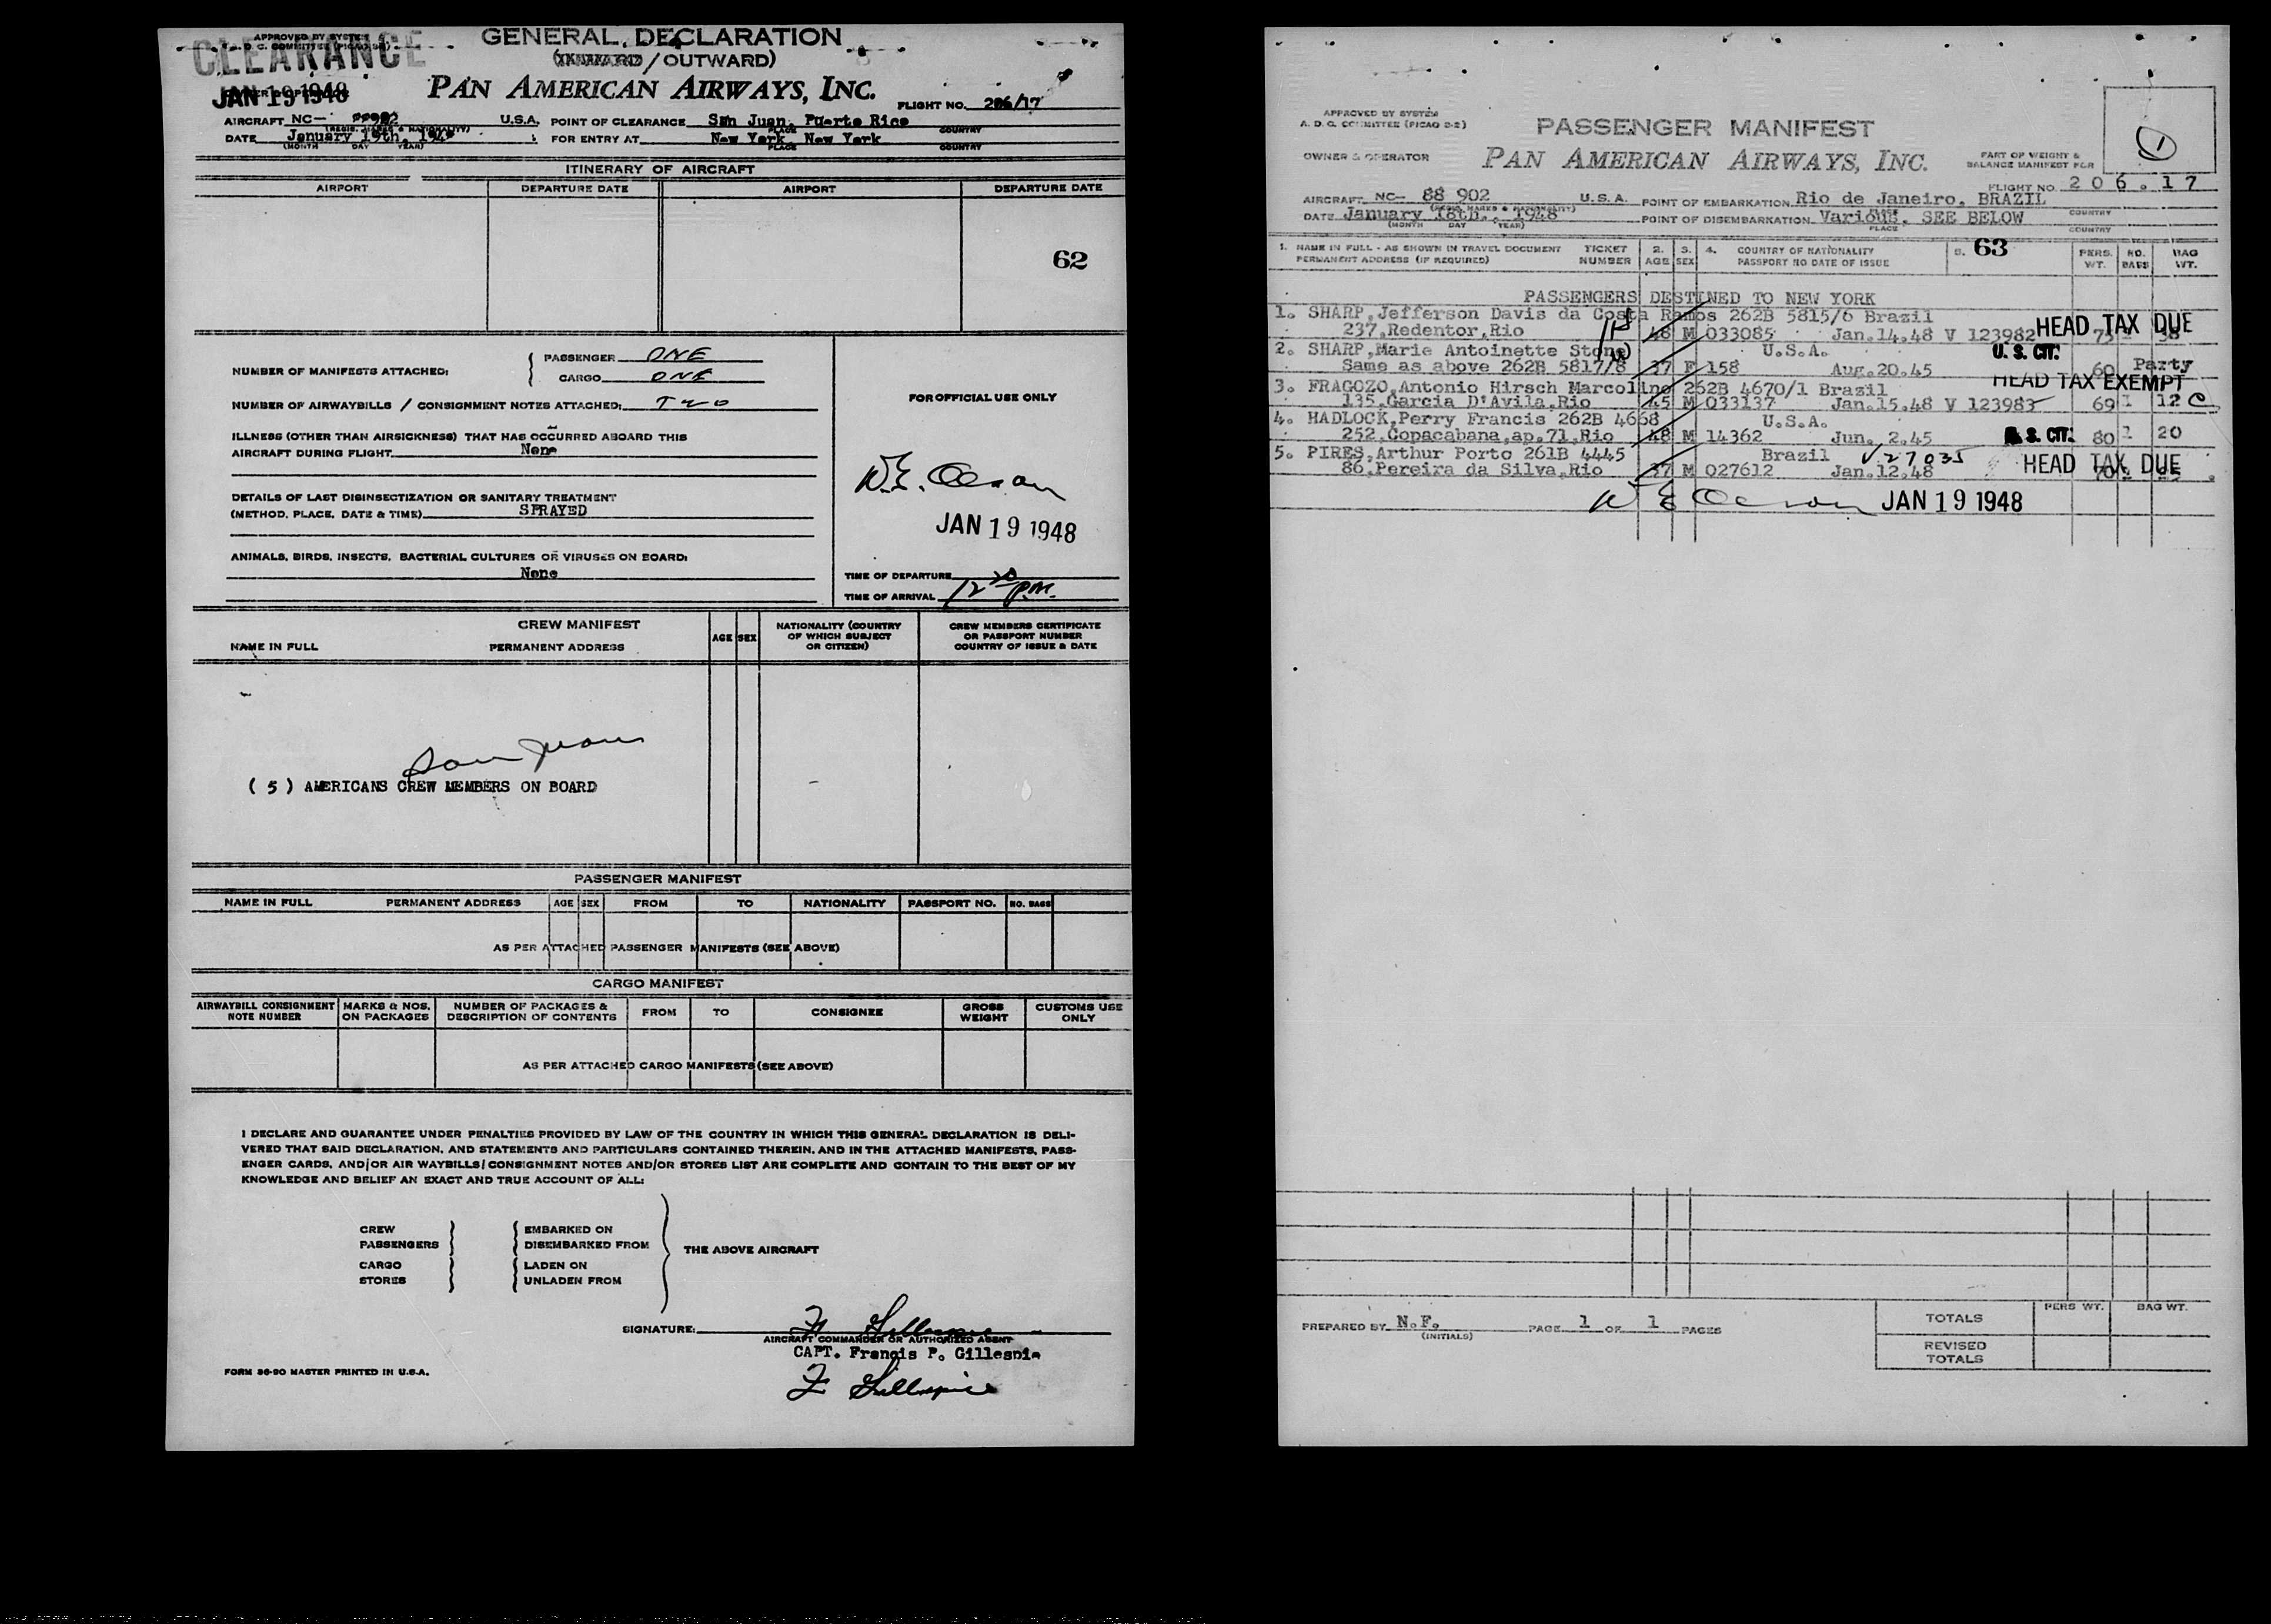 APPROVED BY SYSTEM
A. D. C. COMMITTEE (PICAO
CLEARANCE
JAN 19 1948
GENERAL DECLARATION
(INWARD / OUTWARD)
PAN AMERICAN AIRWAYS, INC.
FLIGHT NO. 206/17
AIRCRAFT NC— 88902 U.S.A. POINT OF CLEARANCE San Juan, Puerto Rico
(REGIS. MARKS & NATIONALITY) PLACE COUNTRY
DATE January 19th, 1948 FOR ENTRY AT New York, New York
(MONTH DAY YEAR) PLACE COUNTRY
ITINERARY OF AIRCRAFT
AIRPORT DEPARTURE DATE AIRPORT DEPARTURE DATE
62
NUMBER OF MANIFESTS ATTACHED: PASSENGER ONE
CARGO ONE
NUMBER OF AIRWAYBILLS / CONSIGNMENT NOTES ATTACHED: TWO
ILLNESS (OTHER THAN AIRSICKNESS) THAT HAS OCCURRED ABOARD THIS
AIRCRAFT DURING FLIGHT None
DETAILS OF LAST DISINSECTIZATION OR SANITARY TREATMENT
(METHOD, PLACE, DATE & TIME) SPRAYED
ANIMALS, BIRDS, INSECTS, BACTERIAL CULTURES OR VIRUSES ON BOARD:
None
FOR OFFICIAL USE ONLY
JAN 19 1948
TIME OF DEPARTURE
TIME OF ARRIVAL 12 20 P.M.
CREW MANIFEST
NAME IN FULL PERMANENT ADDRESS AGE SEX NATIONALITY (COUNTRY OF WHICH SUBJECT OR CITIZEN) CREW MEMBERS CERTIFICATE OR PASSPORT NUMBER COUNTRY OF ISSUE & DATE
San Juan
( 5 ) AMERICANS CREW MEMBERS ON BOARD
PASSENGER MANIFEST
NAME IN FULL PERMANENT ADDRESS AGE SEX FROM TO NATIONALITY PASSPORT NO. NO. BAGS
AS PER ATTACHED PASSENGER MANIFESTS (SEE ABOVE)
CARGO MANIFEST
AIRWAYBILL CONSIGNMENT NOTE NUMBER MARKS & NOS. ON PACKAGES NUMBER OF PACKAGES & DESCRIPTION OF CONTENTS FROM TO CONSIGNEE GROSS WEIGHT CUSTOMS USE ONLY
AS PER ATTACHED CARGO MANIFESTS (SEE ABOVE)
I DECLARE AND GUARANTEE UNDER PENALTIES PROVIDED BY LAW OF THE COUNTRY IN WHICH THIS GENERAL DECLARATION IS DELI-
VERED THAT SAID DECLARATION, AND STATEMENTS AND PARTICULARS CONTAINED THEREIN, AND IN THE ATTACHED MANIFESTS, PASS-
ENGER CARDS, AND/OR AIR WAYBILLS/CONSIGNMENT NOTES AND/OR STORES LIST ARE COMPLETE AND CONTAIN TO THE BEST OF MY
KNOWLEDGE AND BELIEF AN EXACT AND TRUE ACCOUNT OF ALL:
CREW EMBARKED ON
PASSENGERS DISEMBARKED FROM
THE ABOVE AIRCRAFT
CARGO LADEN ON
STORES UNLADEN FROM
SIGNATURE: F Gillespie
AIRCRAFT COMMANDER OR AUTHORIZED AGENT
CAPT. Francis P. Gillespie
F Gillespie
FORM 36-90 MASTER PRINTED IN U.S.A.
APPROVED BY SYSTEM
A. D. C. COMMITTEE (PICAO D-2)
PASSENGER MANIFEST
1
OWNER & OPERATOR PAN AMERICAN AIRWAYS, INC.
PART OF WEIGHT &
BALANCE MANIFEST FOR
FLIGHT NO. 206.17
AIRCRAFT NC— 88 902 U.S.A. POINT OF EMBARKATION Rio de Janeiro, BRAZIL
(REGIS. MARKS & NATIONALITY) COUNTRY
DATE January 18th., 1948 POINT OF DISEMBARKATION Various, SEE BELOW
(MONTH DAY YEAR) PLACE COUNTRY
1. NAME IN FULL - AS SHOWN IN TRAVEL DOCUMENT TICKET 2. 3. 4. COUNTRY OF NATIONALITY 5. 63 PERS. NO. BAG
PERMANENT ADDRESS (IF REQUIRED) NUMBER AGE SEX PASSPORT NO DATE OF ISSUE WT. BAGS WT.
PASSENGERS DESTINED TO NEW YORK
1. SHARP,Jefferson Davis da Costa Ramos 262B 5815/6 Brazil
237,Redentor,Rio 48 M 033085 Jan.14.48 V 123982 HEAD TAX DUE
2. SHARP,Marie Antoinette Stone U.S.A. U. S. CIT.
Same as above 262B 5817/8 37 F 158 Aug.20.45 60 Party
HEAD TAX EXEMPT
3. FRAGOZO,Antonio Hirsch Marcolino 262B 4670/1 Brazil
135,Garcia D'Avila,Rio 45 M 033137 Jan.15.48 V 123983 69 1 12 C
4. HADLOCK,Perry Francis 262B 4668 U.S.A.
252,Copacabana,ap.71,Rio 48 M 14362 Jun. 2.45 U. S. CIT. 80 1 20
5. PIRES,Arthur Porto 261B 4445 Brazil V 27035
86,Pereira da Silva,Rio 37 M 027612 Jan.12.48 HEAD TAX DUE
JAN 19 1948
PREPARED BY N.F. PAGE 1 OF 1 PAGES
(INITIALS)
PERS WT. BAG WT.
TOTALS
REVISED
TOTALS